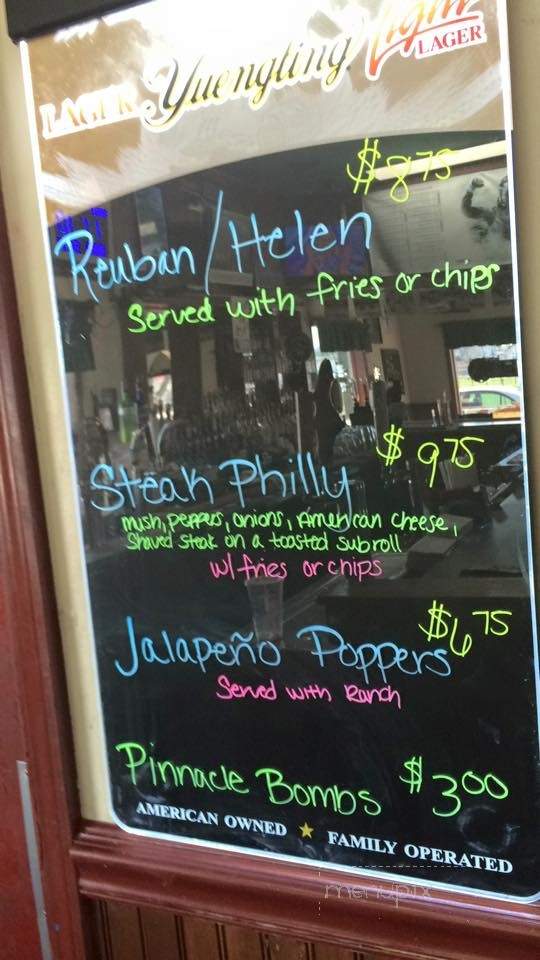 LAGER Yuengling Light LAGER
$8.75
Reuban/Helen
Served with fries or chips
Steak Philly $9.75
mush, peppers, onions, American cheese,
Shaved steak on a toasted subroll
w/ fries or chips
Jalapeño Poppers $6.75
Served with Ranch
Pinnacle Bombs $3.00
AMERICAN OWNED ★ FAMILY OPERATED
menupix